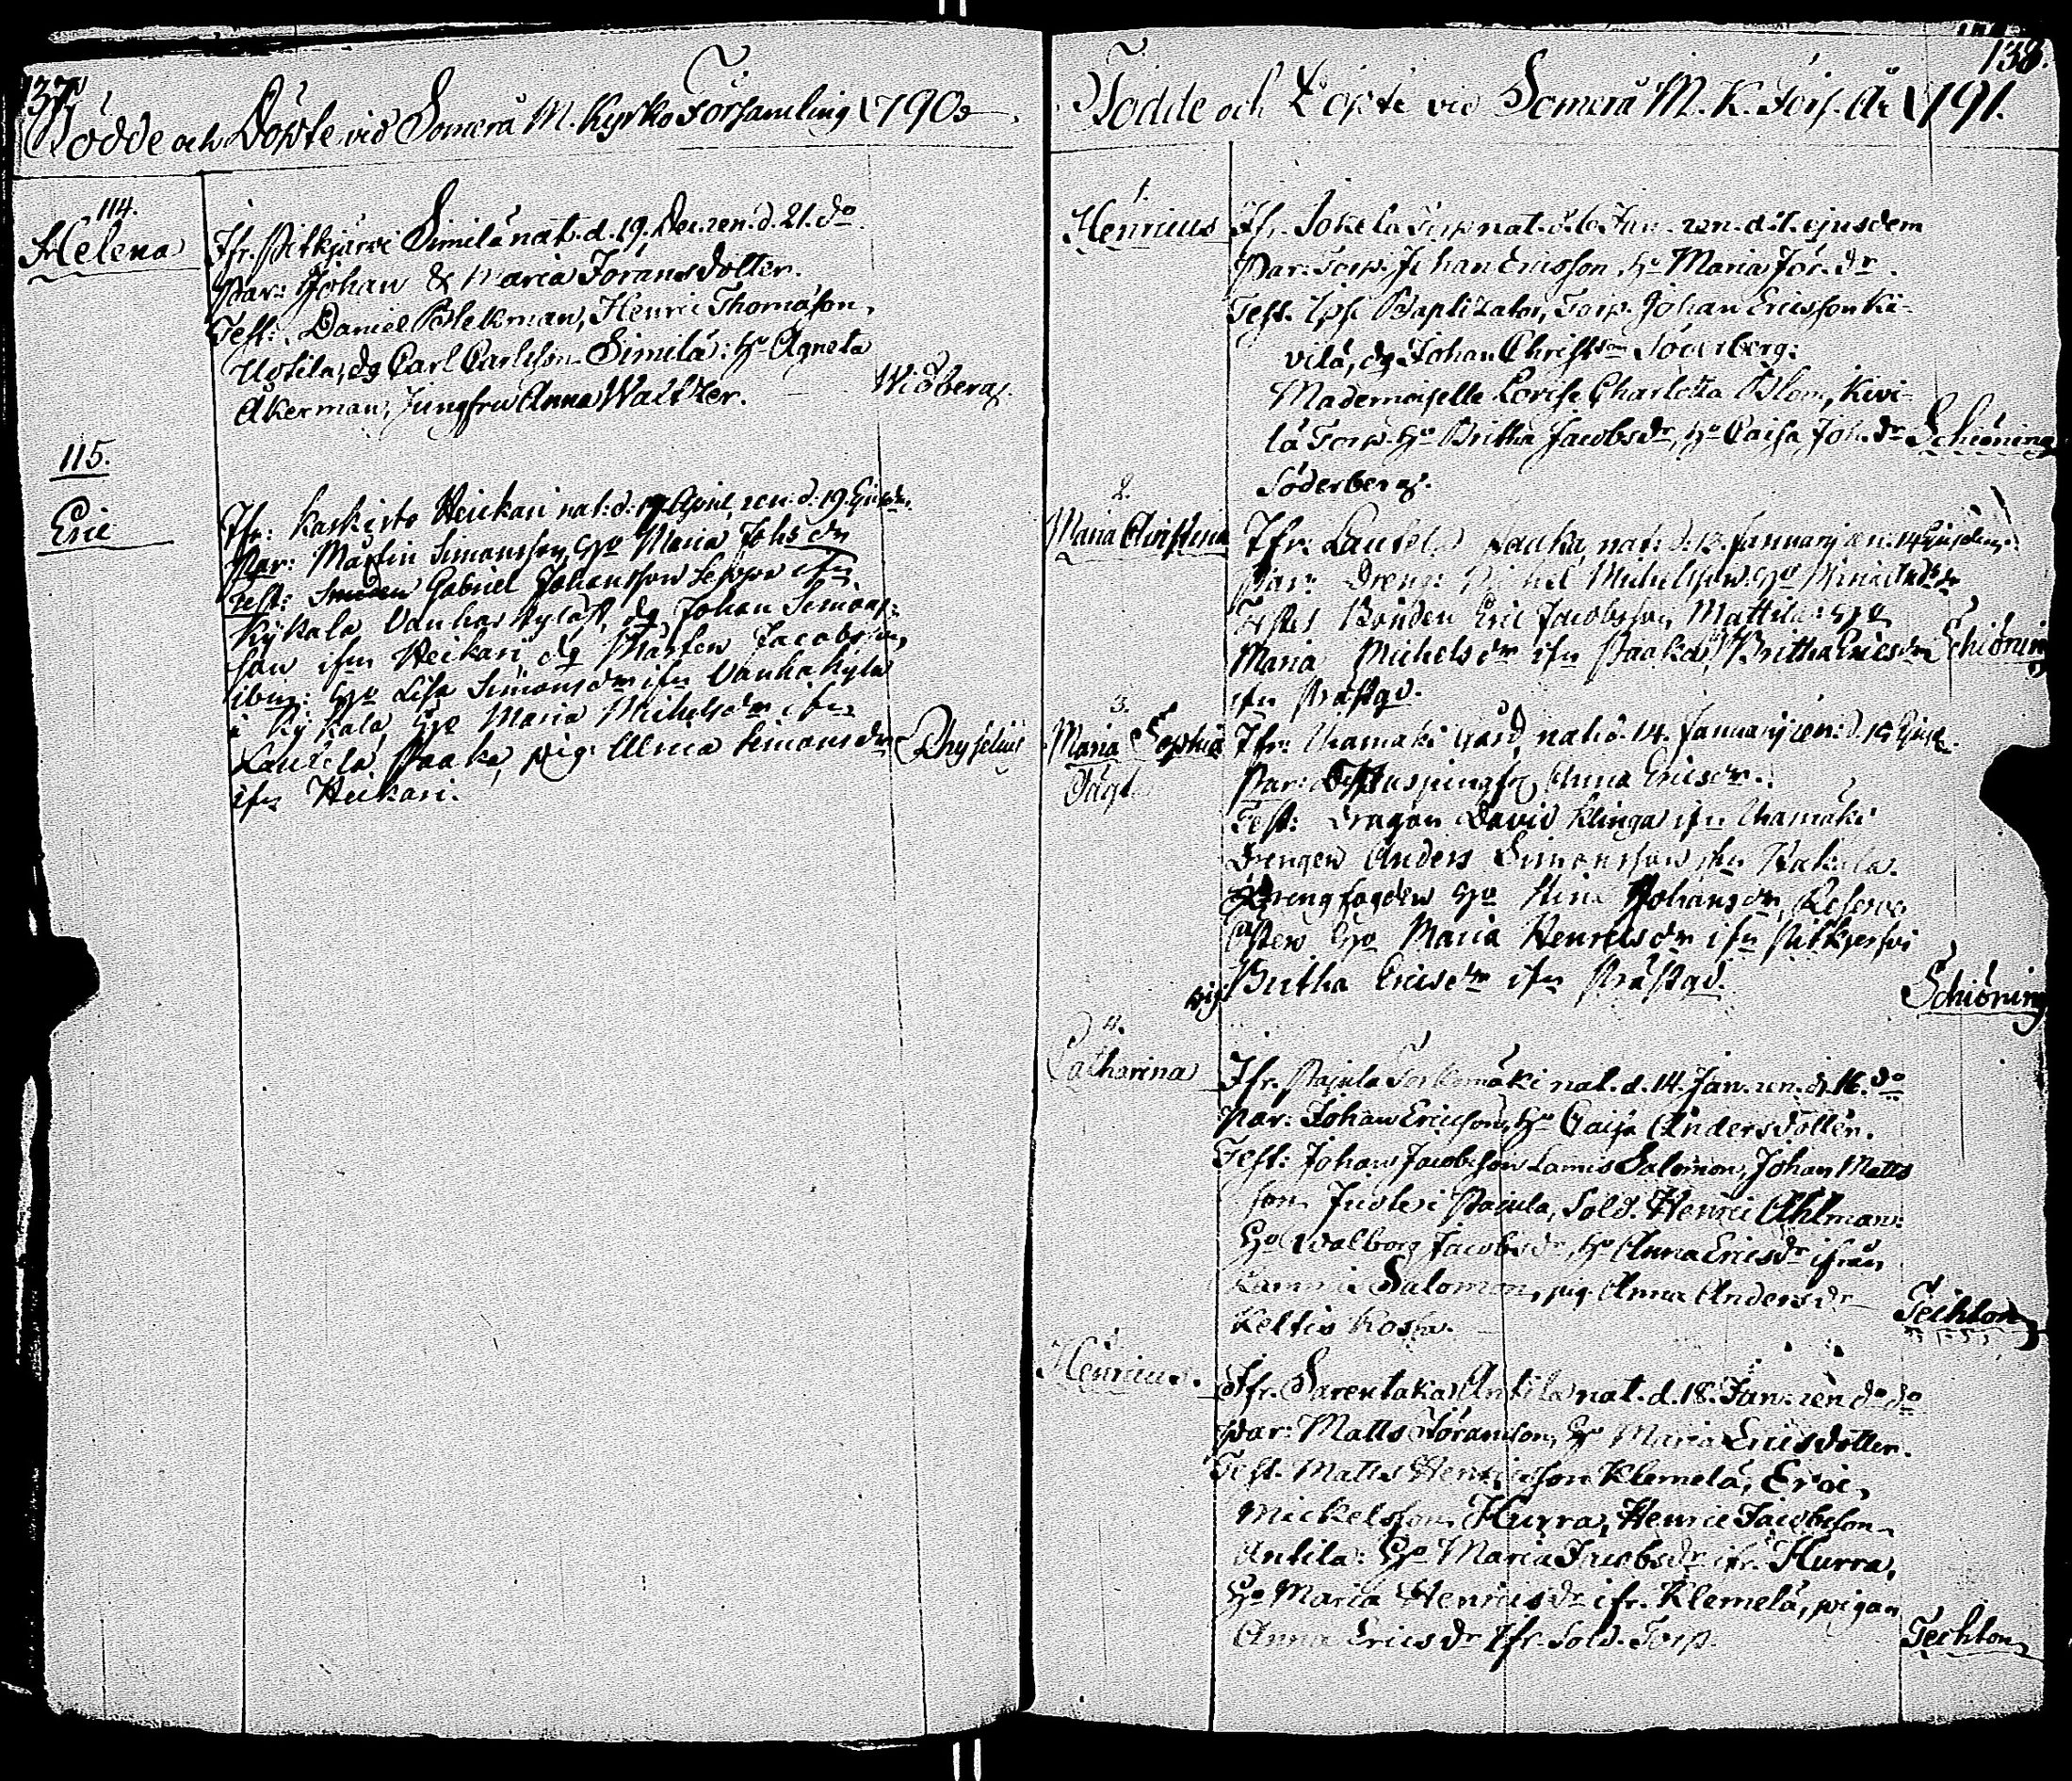 137.
Födde och Döpte vid Somerå M. Kyrko Församling 1790.
114.
Helena
Ifr. Pitkjärvi Similä nat. d. 19. Dec. ren. d. 21. do
Par: Johan & Maria Joransdotter.
Test: Daniel Blekman, Henric Thomasson
Uotila, dg Carl Carlsson Similä: Ho Agneta
Åkerman, Jungfru Anna Waltzer.
Widberg.
115.
Eric
Ifr: Kaskisto Heikari nat: d: 19 April, ren: d: 19.
Par: Martin Simonsson, Ho Maria Johsdr
Test: Smeden Gabriel Johansson Seppa ifn
Kykala Vanhaskylast, dg Johan Simons-
son ifn Heikari, dg Mårten Jacobsson
ibm: Ho Lisa Simonsdr ifn Vanhakylä
i Kykala, Ho Maria Michelsdr ifn
Lautela Paaka, pig: Ulrica Simonsdr
ifn Heikari.
Dryselius
138.
Födde och Döpte vid Somerå M. K. Förs. År 1791.
1.
Henricus
Ifr. Jokela Torp nat. d. 6 Jan. ren. d. 7. ejusdem
Par: Torp. Johan Ericsson, Ho Maria Jör. dr.
Test. Ipse Baptizator, Torp. Johan Ericsson Ki-
vilä, dg Johan Christ Söderberg:
Mademoiselle Lovise Charlotta Blom, Kivi-
lä Torp. Ho Britha Jacobsdr, Ho Caisa Joh. dr
Söderberg.
Schiöning
2.
Maria Christina
Ifr: Lautela Paaka, nat: d: 13. January ren: 14 Ejusdem.
Par: Dreng: Michelsson Ho
Testes Bonden Eric Jacobsson Mattila: Ho
Maria Michelsdr ifn Paaka, Britha Ericsdr
ifn Prästgd.
Schiöning
3.
Maria Sophia
Ifr: Gård, nat: d. 14. January ren: d. 15
Par: Anna Ericsdr.
Test: Dragon David Klinga ifn
Drengen Anders Simonsson ifn
Ho Stina Johansdr,
Ho Maria Henricsdr ifn Pitkjerfvi
pig: Britha Ericsdr ifn Prästgd.
Schiöning
4.
Catharina
Ifr. Pajula nat. d. 14. Jan. ren. d. 16. do
Par: Johan Ericsson, Ho Caisa Andersdotter.
Test: Johan Jacobsson Lamis Salomon, Johan Matts
son i Pajula, Sold. Henric Ahlman:
Ho Walborg Jacobsdr, Ho Anna Ericsdr ifrån
Salomon, pig. Anna Andersdr
Keltis Koskis.
Techlon
5.
Henricus.
Ifr. Sarentaka Antila nat. d. 18. Jan. ren do do
Par: Matts Joransson, Ho Maria Ericsdotter.
Test. Matts Henricsson Klemelä, Eric
Mickelsson Hurra, Henric Jacobsson
Antila: Ho Maria Jacobsdr ifr. Hurra,
Ho Maria Henricsdr ifr. Klemelä, pigan
Anna Ericsdr Ifr. Sold. Torp.
Techlon